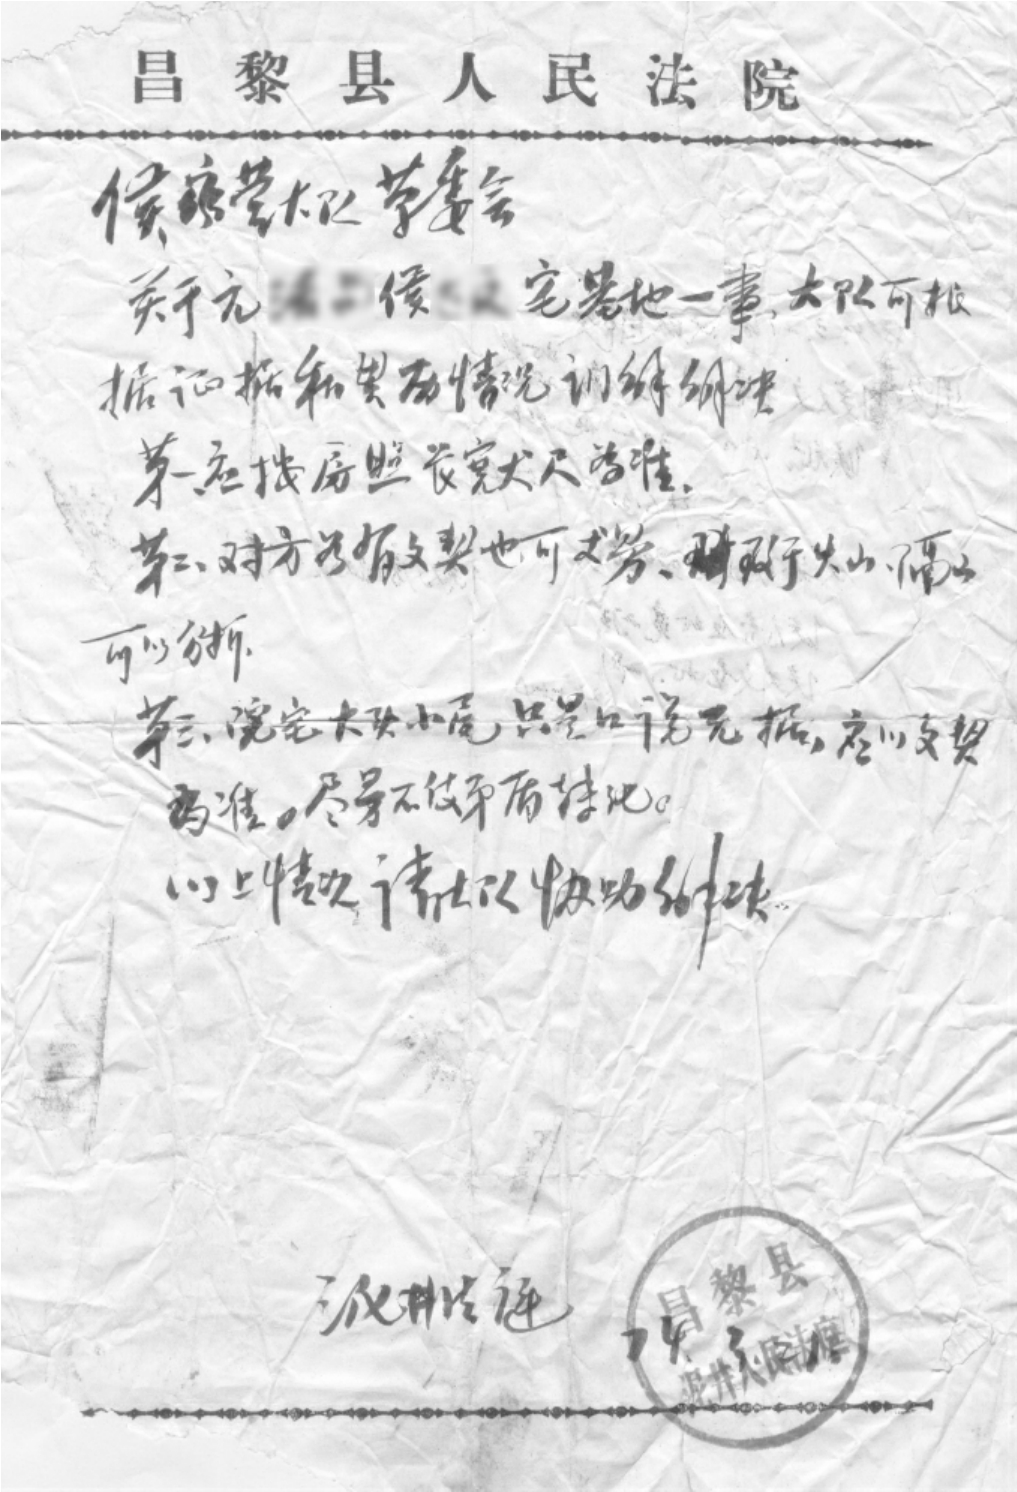 昌黎县人民法院
侯家营大队革委会
关于元 侯 宅基地一事、大队可根
据证据和实际情况调解解决
第一、应找房照长宽丈尺为准.
第二、对方若有文契也可 于火山、隔山
可以分析.
第三、院宅大头小尾只是口说无据,应以文契
为准。尽量不使矛盾转化。
以上情况请大队协助解决
泥井法庭
74. 3.
昌黎县
泥井人民法庭